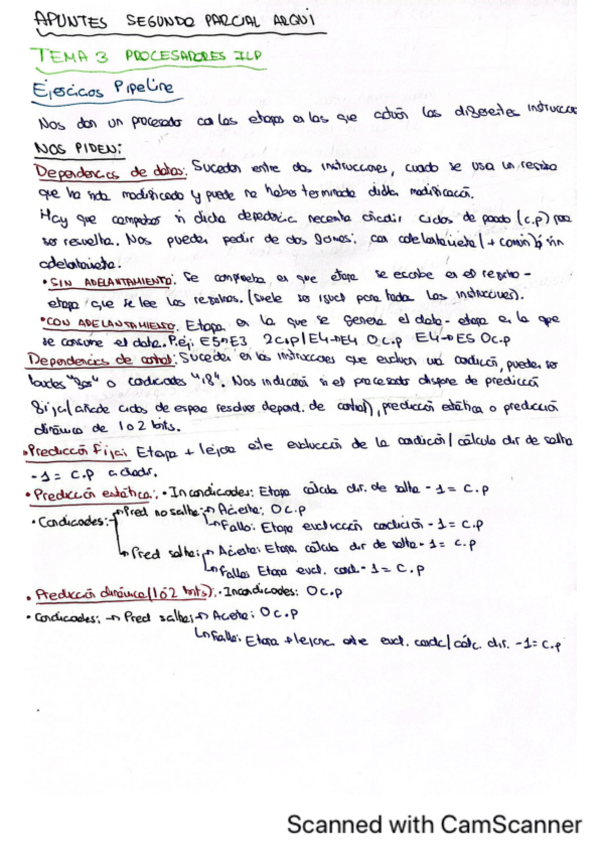 APUNTES SEGUNDO PARCIAL ARQUI
TEMA 3 PROCESADORES ILP
Ejercicios Pipeline
Nos dan un procesador con las etapas en las que actúan las diferentes instruccion
NOS PIDEN:
Dependencias de datos: Suceden entre dos instrucciones, cuando se usa un registro
que ha sido modificado y puede no haber terminado dicha modificación.
Hay que comprobar si dicha dependencia necesita añadir ciclos de parada (c.p) para
ser resuelta. Nos pueden pedir de dos formas: con adelantamiento (+ común) o sin
adelantamiento.
• SIN ADELANTAMIENTO: Se comprueba en que etapa se escribe en el registro -
etapa que se lee los registros. (Suele ser igual para todas las instrucciones).
• CON ADELANTAMIENTO: Etapa en la que se genera el dato - etapa en la que
se consume el dato. P.ej: E5→E3 2c.p / E4→E4 0 c.p E4→E5 0c.p
Dependencias de control: Suceden en las instrucciones que evalúan una condición, pueden ser
bucles "for" o condicionales "if". Nos indicarán si el procesador dispone de predicción
fija (añade ciclos de espera resolver depend. de control), predicción estática o predicción
dinámica de 1 o 2 bits.
• Predicción Fija: Etapa + lejana entre evaluación de la condición / cálculo dir de salto
- 1 = c.p a añadir.
• Predicción estática: • Incondicionales: Etapa calcula dir. de salto - 1 = c.p
• Condicionales: → Pred no saltar → Acierto: 0c.p
↳ Fallo: Etapa evaluación condición - 1 = c.p
↳ Pred saltar: → Acierto: Etapa cálculo dir de salto - 1 = c.p
↳ Fallo: Etapa eval. cond. - 1 = c.p
• Predicción dinámica (1 ó 2 bits): • Incondicionales: 0c.p
• Condicionales: → Pred saltar → Acierto: 0c.p
↳ Fallo: Etapa + lejana entre eval. condc / cálc. dir. - 1 = c.p
Scanned with CamScanner